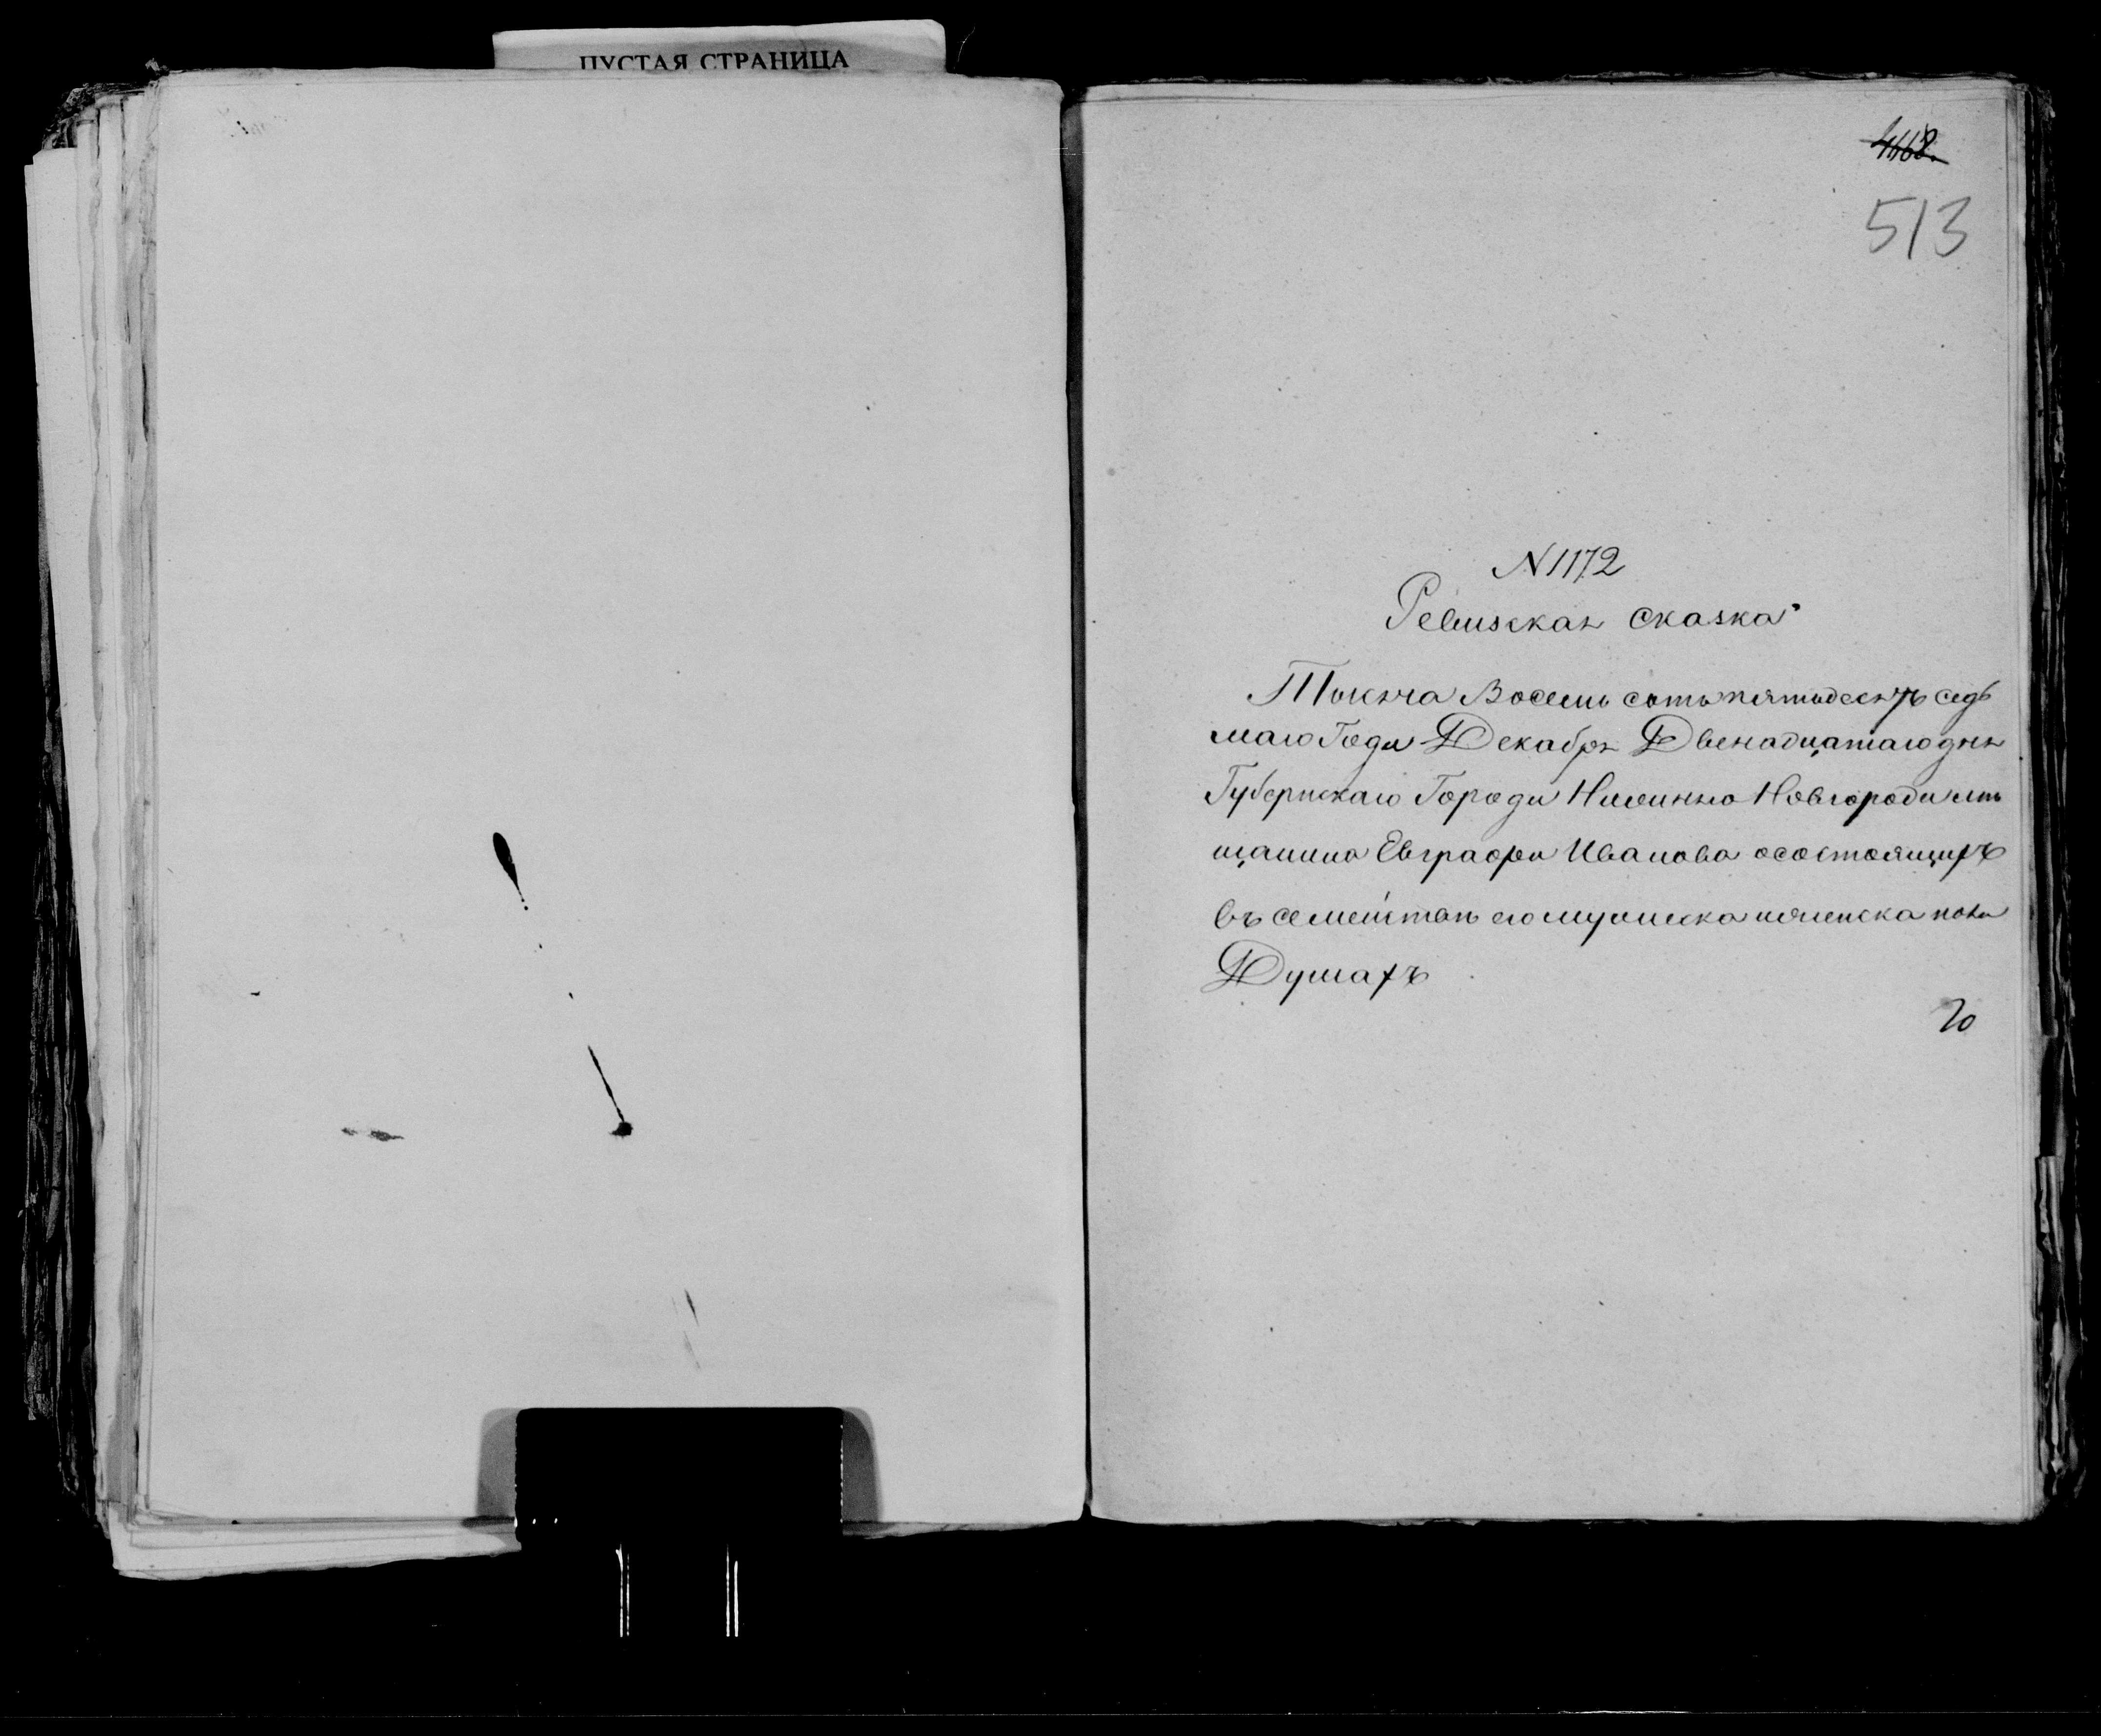 ПУСТАЯ СТРАНИЦА
4668.
513
N 1172
Ревизская сказка
Тысяча Восемь сотъ пятьдесятъ седь
маго Года Декабря Двенадцатаго дня
Губернскаго Города Нижняго Новгорода мѣ
щанина Евграфа Иванова осостоящихъ
въ семействѣ его мужеска иженска пола
Душахъ